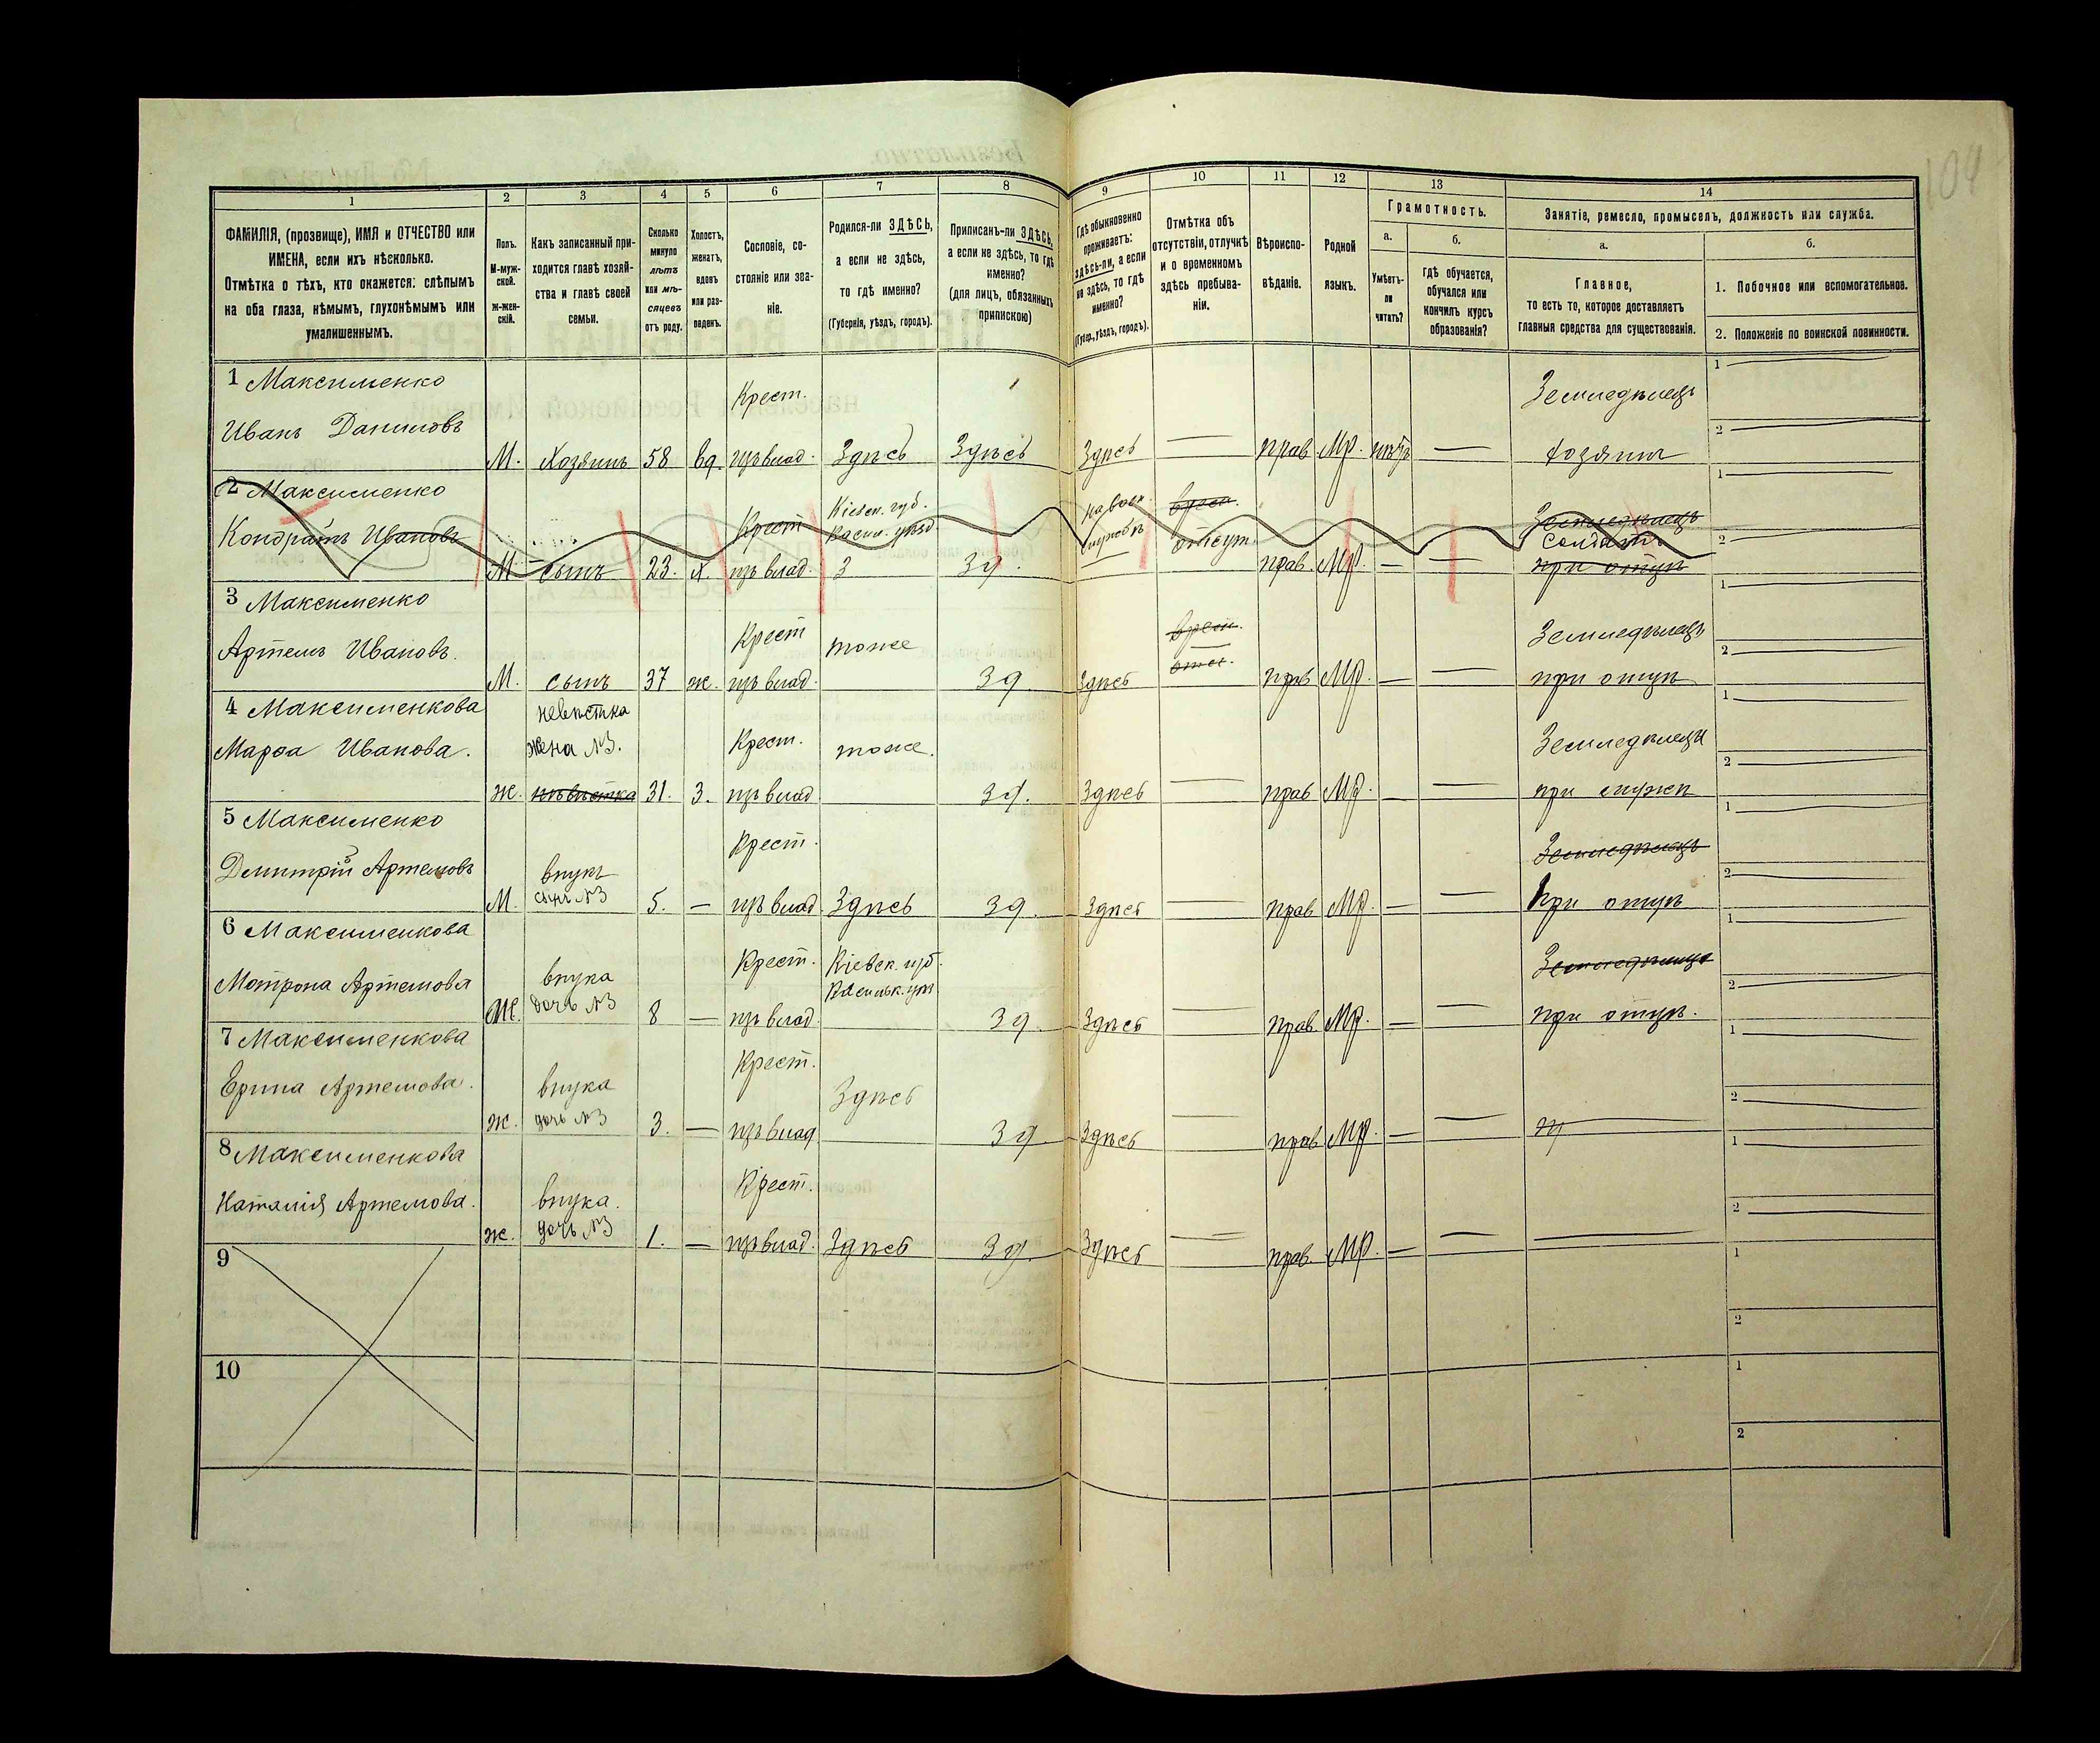 104
1
2
3
4
5
6
7
8
9
10
11
12
13
14
ФАМИЛІЯ, (прозвище), ИМЯ и ОТЧЕСТВО или
ИМЕНА, если ихъ нѣсколько.
Отмѣтка о тѣхъ, кто окажется: слѣпымъ
на оба глаза, нѣмымъ, глухонѣмымъ или
умалишеннымъ.
Полъ.
М-муж-
ской.
ж-жен-
скій.
Какъ записанный при-
ходится главѣ хозяй-
ства и главѣ своей
семьи.
Сколько
минуло
лѣтъ
или мѣ-
сяцевъ
отъ роду.
Холостъ,
женатъ,
вдовъ
или раз-
веденъ.
Сословіе, со-
стояніе или зва-
ніе.
Родился-ли ЗДѢСЬ,
а если не здѣсь,
то гдѣ именно?
(Губернія, уѣздъ, городъ).
Приписанъ-ли ЗДѢСЬ,
а если не здѣсь, то гдѣ
именно?
(для лицъ, обязанныхъ
припискою)
Гдѣ обыкновенно
проживаетъ:
здѣсь-ли, а если
не здѣсь, то гдѣ
именно?
(Губер., уѣздъ, городъ).
Отмѣтка объ
отсутствіи, отлучкѣ
и о временномъ
здѣсь пребыва-
ніи.
Вѣроиспо-
вѣданіе.
Родной
языкъ.
Грамотность.
а.
Умѣетъ-
ли
читать?
б.
гдѣ обучается,
обучался или
кончилъ курсъ
образованія?
Занятіе, ремесло, промыселъ, должность или служба.
а.
Главное,
то есть то, которое доставляетъ
главныя средства для существованія.
б.
1. Побочное или вспомогательное.
2. Положеніе по воинской повинности.
1 Максименко
Крест.
Земледѣлецъ
1
Иванъ Даниловъ
2
М. Хозяинъ 58 вд. изъ влад. Здѣсь Здѣсь Здѣсь — прав Мр. нѣтъ — хозяинъ
2 Максименко
Кіевск. губ.
на воен.
врем.
1
Кондратъ Ивановъ
Крест
Васил. уѣзд
службѣ
отсут.
Земледѣлецъ
солдатъ
2
М. сынъ 23. х. изъ влад. З Зд. прав. Мр. — — при отцѣ
3 Максименко
Крест
врем.
Земледѣлецъ
1
Артемъ Ивановъ.
тоже
отс.
2
М. сынъ 37 ж. изъ влад. Зд. Здѣсь прав Мр. — — при отцѣ
4 Максименкова
невѣстка
1
Марѳа Иванова.
жена №3.
Крест.
тоже.
Земледѣлецъ
2
ж. невѣстка 31. З. изъ влад. Зд. Здѣсь — прав Мр. — — при мужѣ
5 Максименко
Крест.
Земледѣлецъ
1
Дмитрій Артемовъ
внукъ
2
М. сынъ №3 5. — изъ влад. Здѣсь Зд. Здѣсь — прав Мр. — — при отцѣ
6 Максименкова
Крест.
Кіевск. губ.
1
Мотрона Артемова
внука
Васильк. уѣз
2
Ж. дочь №3 8 — изъ влад. Зд. Здѣсь — прав. Мр. — — при отцѣ.
7 Максименкова
Крест.
1
Ерина Артемова.
внука
Здѣсь
2
ж. дочь №3 3. — изъ влад Зд. Здѣсь — прав Мр. — —
8 Максименкова
Крест.
1
Наталія Артемова.
внука.
2
ж. дочь №3 1. — изъ влад. Здѣсь Зд. Здѣсь — прав. Мр. — — —
9
1
2
10
1
2